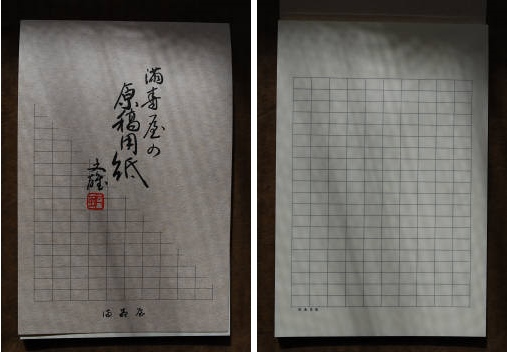 満寿屋の
原稿用紙
文雄
満寿屋